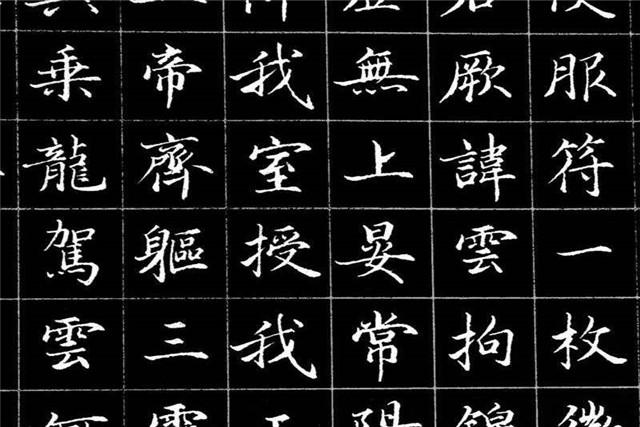 服符一枚
厥諱雲拘
無上晏常
我室授我
帝齊軀三
乘龍駕雲